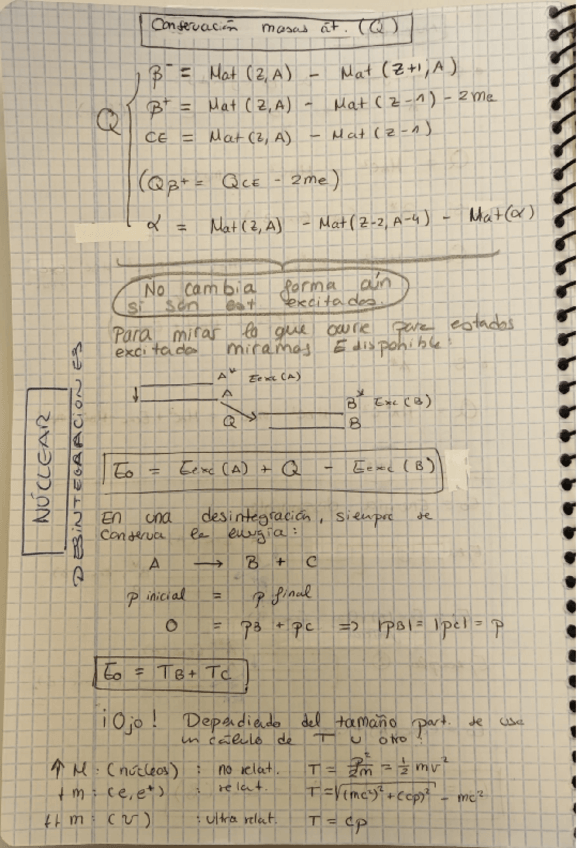 Conservación masas át. (Q)
β⁻ = Mat (Z,A) - Mat (Z+1, A)
Q
β⁺ = Mat (Z,A) - Mat (Z-1) - 2me
CE = Mat (Z,A) - Mat (Z-1)
(Qβ⁺ = QCE - 2me)
α = Mat (Z,A) - Mat (Z-2, A-4) - Mat(α)
No cambia forma aún
si son est excitados.
Para mirar lo que ocurre para estados
excitado miramos E disponible:
A* Eexc (A)
A
B* Exc (B)
Q
B
E0 = Eexc (A) + Q - Eexc (B)
NÚCLEAR
DESINTEGRACIONES
En una desintegración, siempre se
conserva la energía:
A → B + C
p inicial = p final
0 = pB + pC ⇒ |pB| = |pc| = p
E0 = TB + TC
¡Ojo! Dependiendo del tamaño part. se usa
un cálculo de T u otro:
↑ M : (núcleos) : no relat. T = p²/2m = 1/2 mv²
↓ m : (e, e⁺) : relat. T = √((mc²)² + (cp)²) - mc²
↓↓ m : (ν) : ultra relat. T = cp